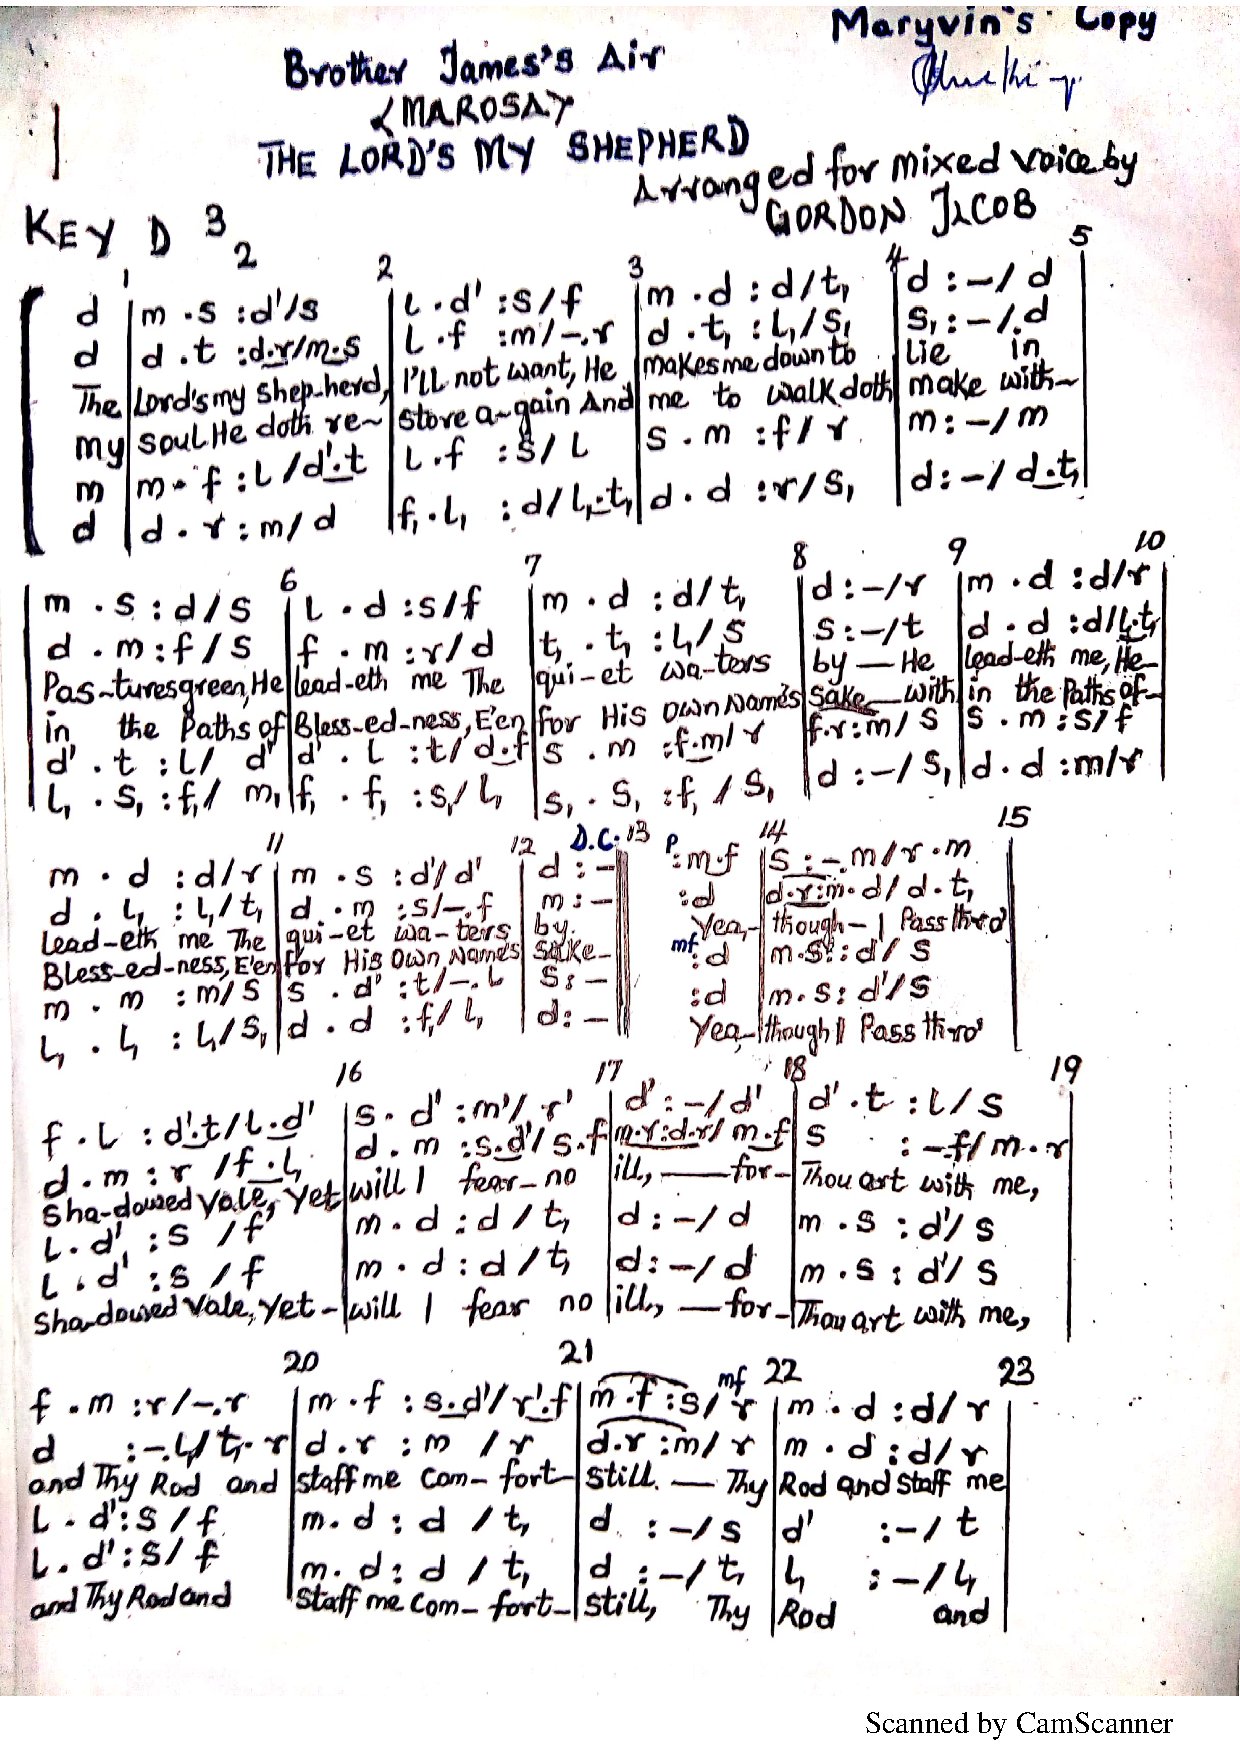 Maryvin's Copy
Brother James's Air
<MAROSA>
1
THE LORD'S MY SHEPHERD
Arranged for mixed voice by
GORDON JACOB
KEY D 3
2
1 2 3 4 5
d | m .s :d'/s | l .d' :s/f | m .d :d/t, | d :-/d
d | d .t :d.r/m.s | l .f :m/-.r | d .t, :l,/s, | s, :-/.d
The | Lord's my Shep-herd, | I'll not want, He | makes me down to | Lie in
my | soul He doth re~ | store a~gain And | me to walk doth | make with~
m | m . f :l/d'.t | l .f :s/l | s .m :f/r | m :-/m
d | d . r :m/d | f, .l, :d/l,.t, | d . d :r/s, | d :-/d.t,
6 7 8 9 10
m . s : d/s | l . d :s/f | m . d :d/t, | d :-/r | m .d :d/r
d . m :f/s | f . m :r/d | t, . t, :l,/s | s :-/t | d . d :d/l,.t,
Pas~tures green, He | lead-eth me The | qui-et wa-ters | by — He | lead-eth me, He~
in the Paths of | Bless-ed-ness, E'en | for His Own Name's | sake — with | in the Paths of~
d' . t :l/ d' | d' . l :t/d.f | s . m :f.m/r | f.r:m/s | s .m :s/f
l, . s, :f,/ m, | f, . f, :s,/l, | s, . s, :f,/s, | d :-/s, | d . d :m/r
11 12 D.C. 13 14 15
m . d :d/r | m .s :d'/d' | d :- | p :m.f | s :-.m/r.m
d . l, :l,/t, | d .m :s/-.f | m :- | :d | d.r:m.d/d.t,
lead-eth me The | qui-et wa-ters | by. | Yea,- | though- I Pass thro'
Bless-ed-ness, E'en | for His Own Name's | sake- | mf :d | m.s :d'/s
m . m :m/s | s . d' :t/-.l | s :- | :d | m.s :d'/s
l, . l, :l,/s, | d . d :f,/l, | d :- | Yea,- | though I Pass thro'
16 17 18 19
f .l :d'.t/l.d' | s. d' :m'/r' | d' :-/d' | d' .t :l/s
d .m :r /f.l, | d .m :s.d'/s.f | m.r:d.r/m.f | s :-f/m.r
Sha-dowed Vale, Yet | will I fear-no | ill, ——for- | Thou art with me,
l. d' :s /f | m . d :d /t, | d :-/d | m .s :d'/s
l . d' :s /f | m . d :d /t, | d :-/d | m .s : d'/s
Sha-dowed Vale, Yet- | will I fear no | ill, —for- | Thou art with me,
20 21 mf 22 23
f .m :r/-.r | m .f :s.d'/r'.f | m .f :s/ r | m . d :d/ r
d :-.l,/t,. r | d .r :m /r | d.r :m/ r | m . d :d/r
and Thy Rod and | staff me com- fort- | still. — Thy | Rod and staff me
l . d' :s /f | m . d : d /t, | d :-/s | d' :-/t
l . d' :s/f | m. d : d /t, | d :-/t, | l, :-/l,
and Thy Rod and | staff me com- fort- | still, Thy | Rod and
Scanned by CamScanner